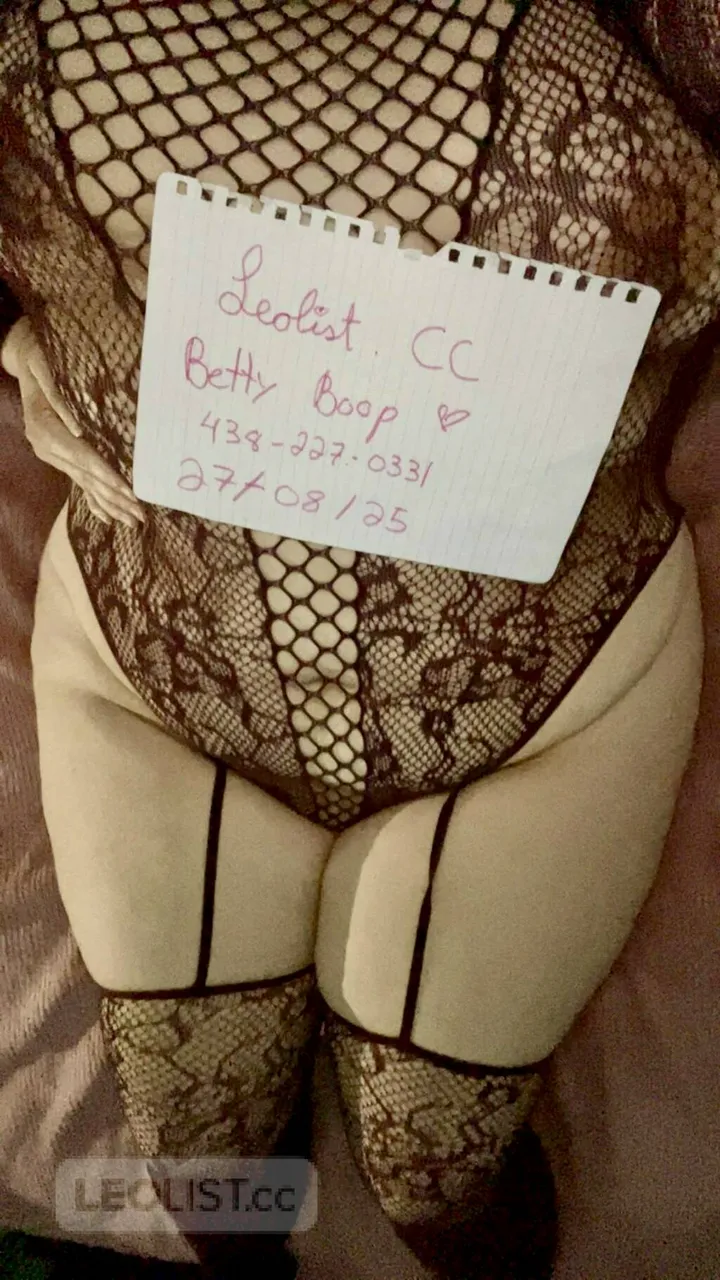 Leolist. CC
Betty Boop ♡
438-227-0331
27/08/25
LEOLIST.cc